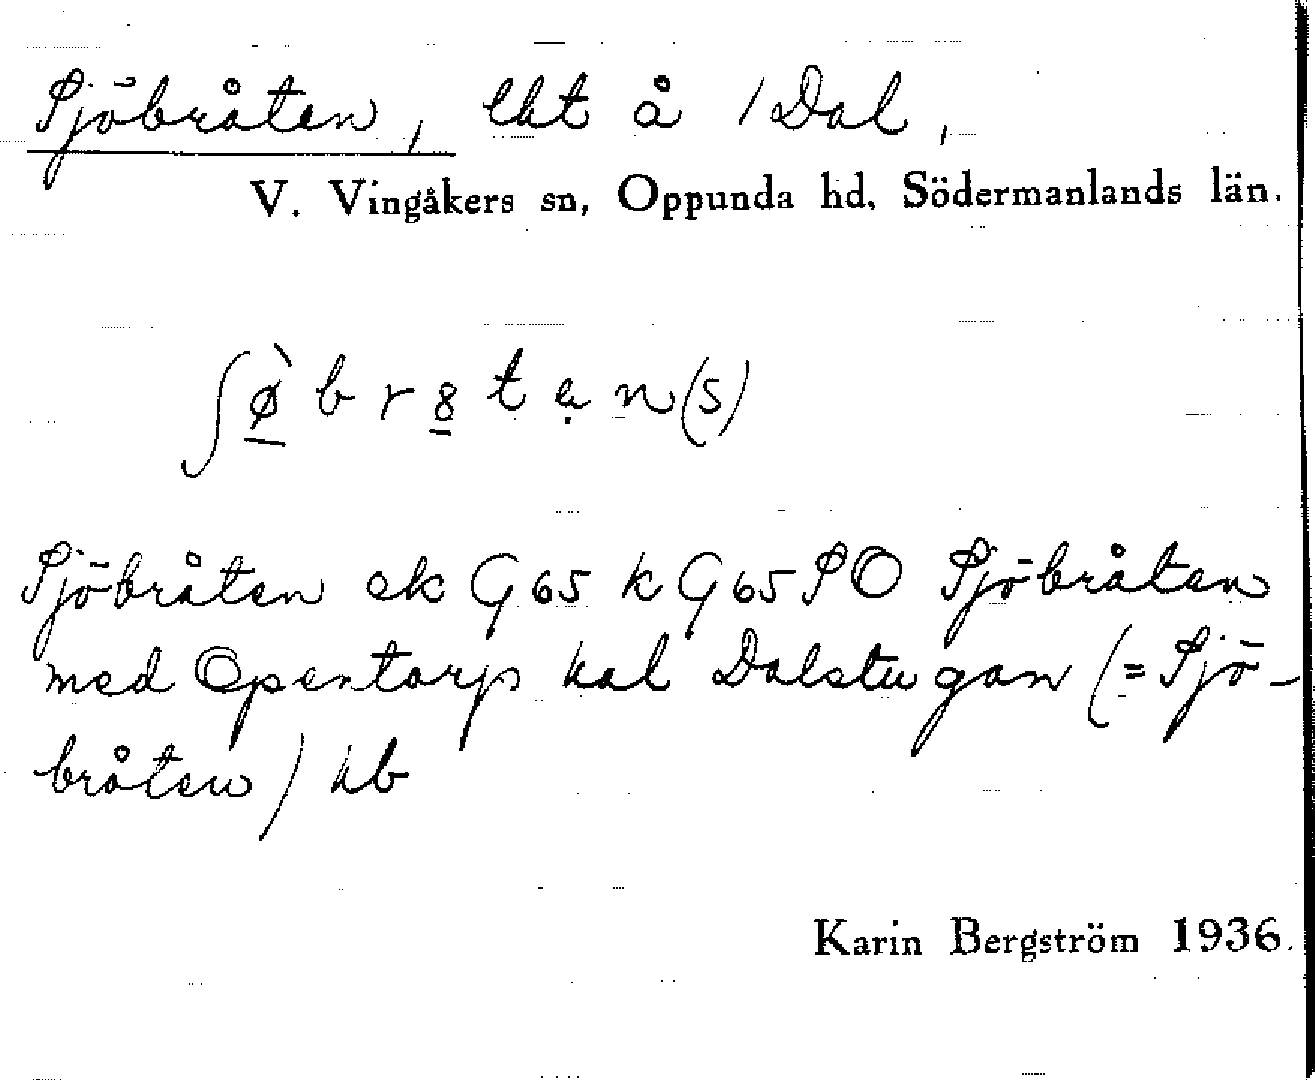 Sjöbråten, lht å /Dal,
V. Vingåkers sn, Oppunda hd, Södermanlands län.
ʃø̀br8tən(s)
Sjöbråten ek G65 k G65 SO Sjöbråten
med Opentorp kal Dalstugan (= Sjö-
bråten) hb
Karin Bergström 1936.